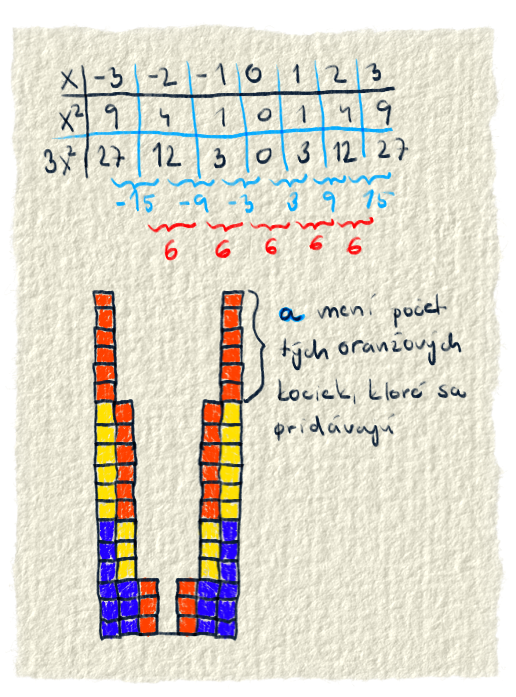 x -3 -2 -1 0 1 2 3
x² 9 4 1 0 1 4 9
3x² 27 12 3 0 3 12 27
-15 -9 -3 3 9 15
6 6 6 6 6
a mení počet
tých oranžových
kociek, ktoré sa
pridávajú